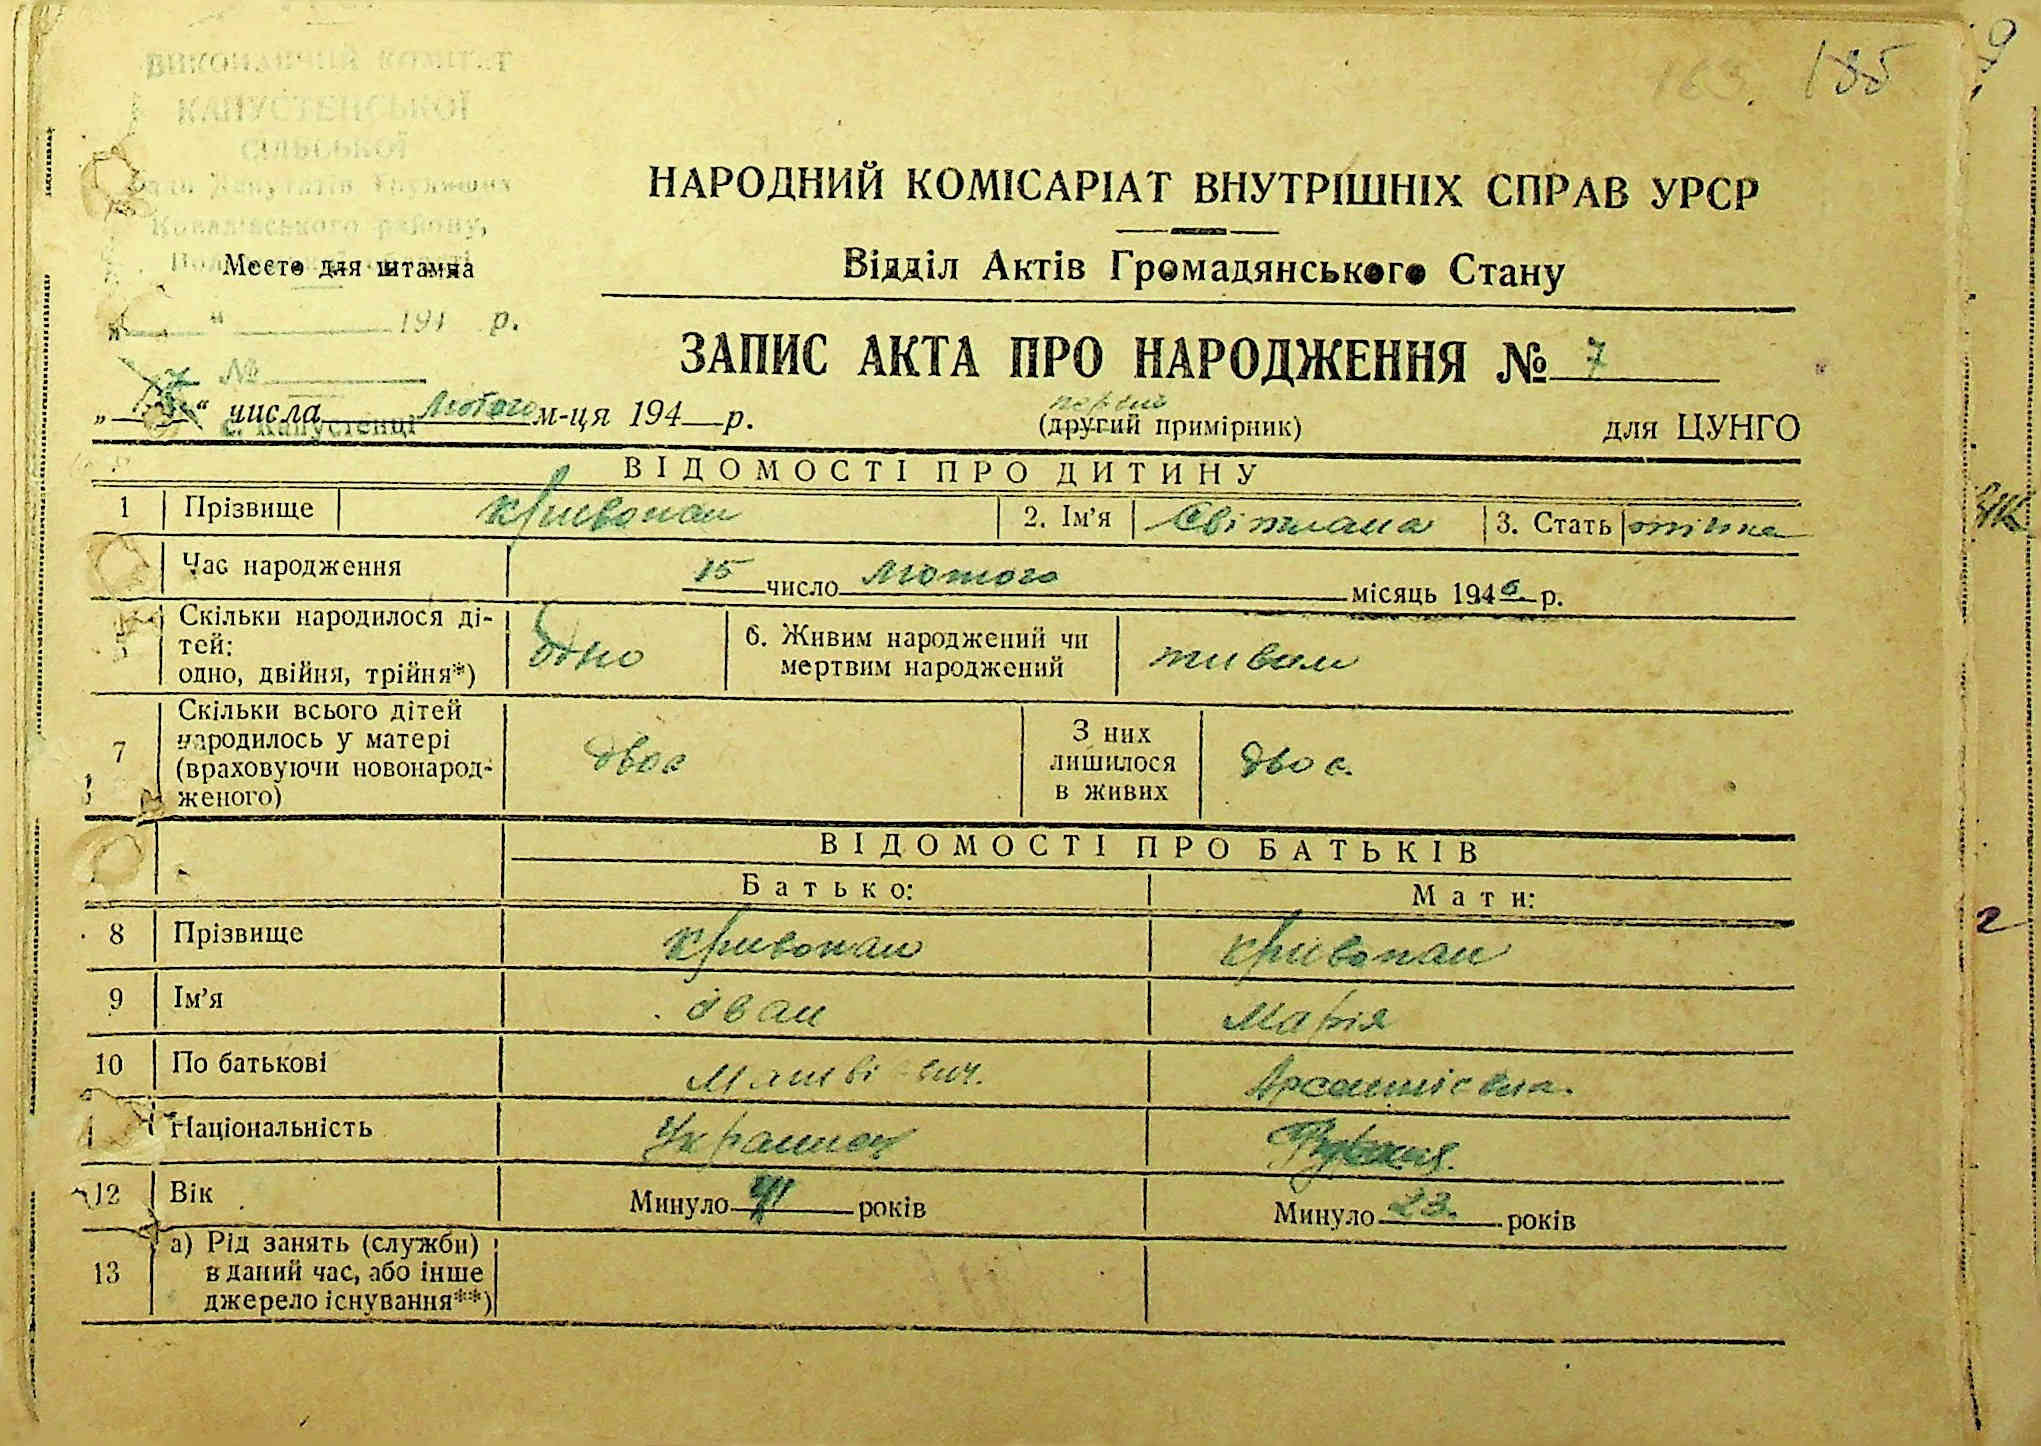 163. 185
ВИКОНАВЧИЙ КОМІТЕТ
КАПУСТЕНСЬКОЇ
СІЛЬСЬКОЇ
Ради Депутатів Трудящих
Ковалівського району,
Место для штампа
"___" ______ 194 р.
№
с. Капустенці
НАРОДНИЙ КОМІСАРІАТ ВНУТРІШНІХ СПРАВ УРСР
Відділ Актів Громадянського Стану
ЗАПИС АКТА ПРО НАРОДЖЕННЯ № 7
" " числа Лютого м-ця 194 р.
первий
(другий примірник) для ЦУНГО
ВІДОМОСТІ ПРО ДИТИНУ
1 Прізвище Кривопан 2. Ім'я Світлана 3. Стать жінка
Час народження 15 число Лютого місяць 1946 р.
Скільки народилося ді-
тей:
одно, двійня, трійня*) одно 6. Живим народжений чи
мертвим народжений живим
7 Скільки всього дітей
народилось у матері
(враховуючи новонарод-
женого) двоє З них
лишилося
в живих двоє.
ВІДОМОСТІ ПРО БАТЬКІВ
Батько: Мати:
8 Прізвище Кривопан Кривопан
9 Ім'я Іван Марія
10 По батькові
Національність Українец
12 Вік Минуло 41 років Минуло 23. років
13 а) Рід занять (служби)
в даний час, або інше
джерело існування**)
2